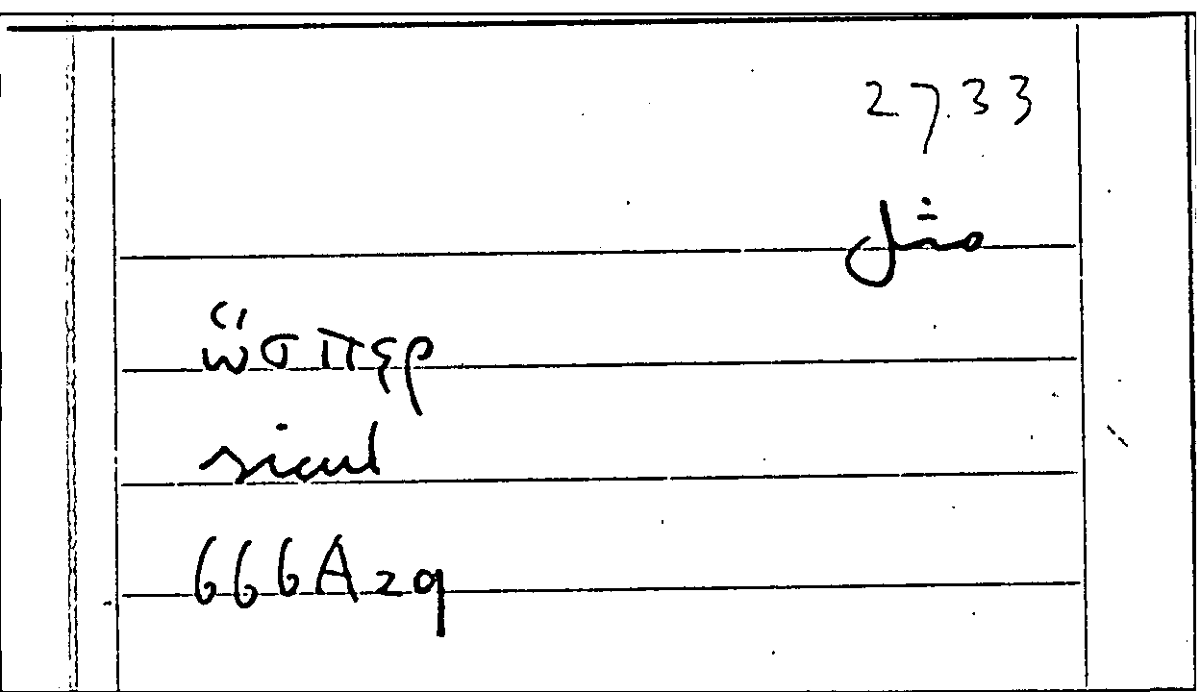 27.33
مثل
ὥσπερ
sicut
666A29